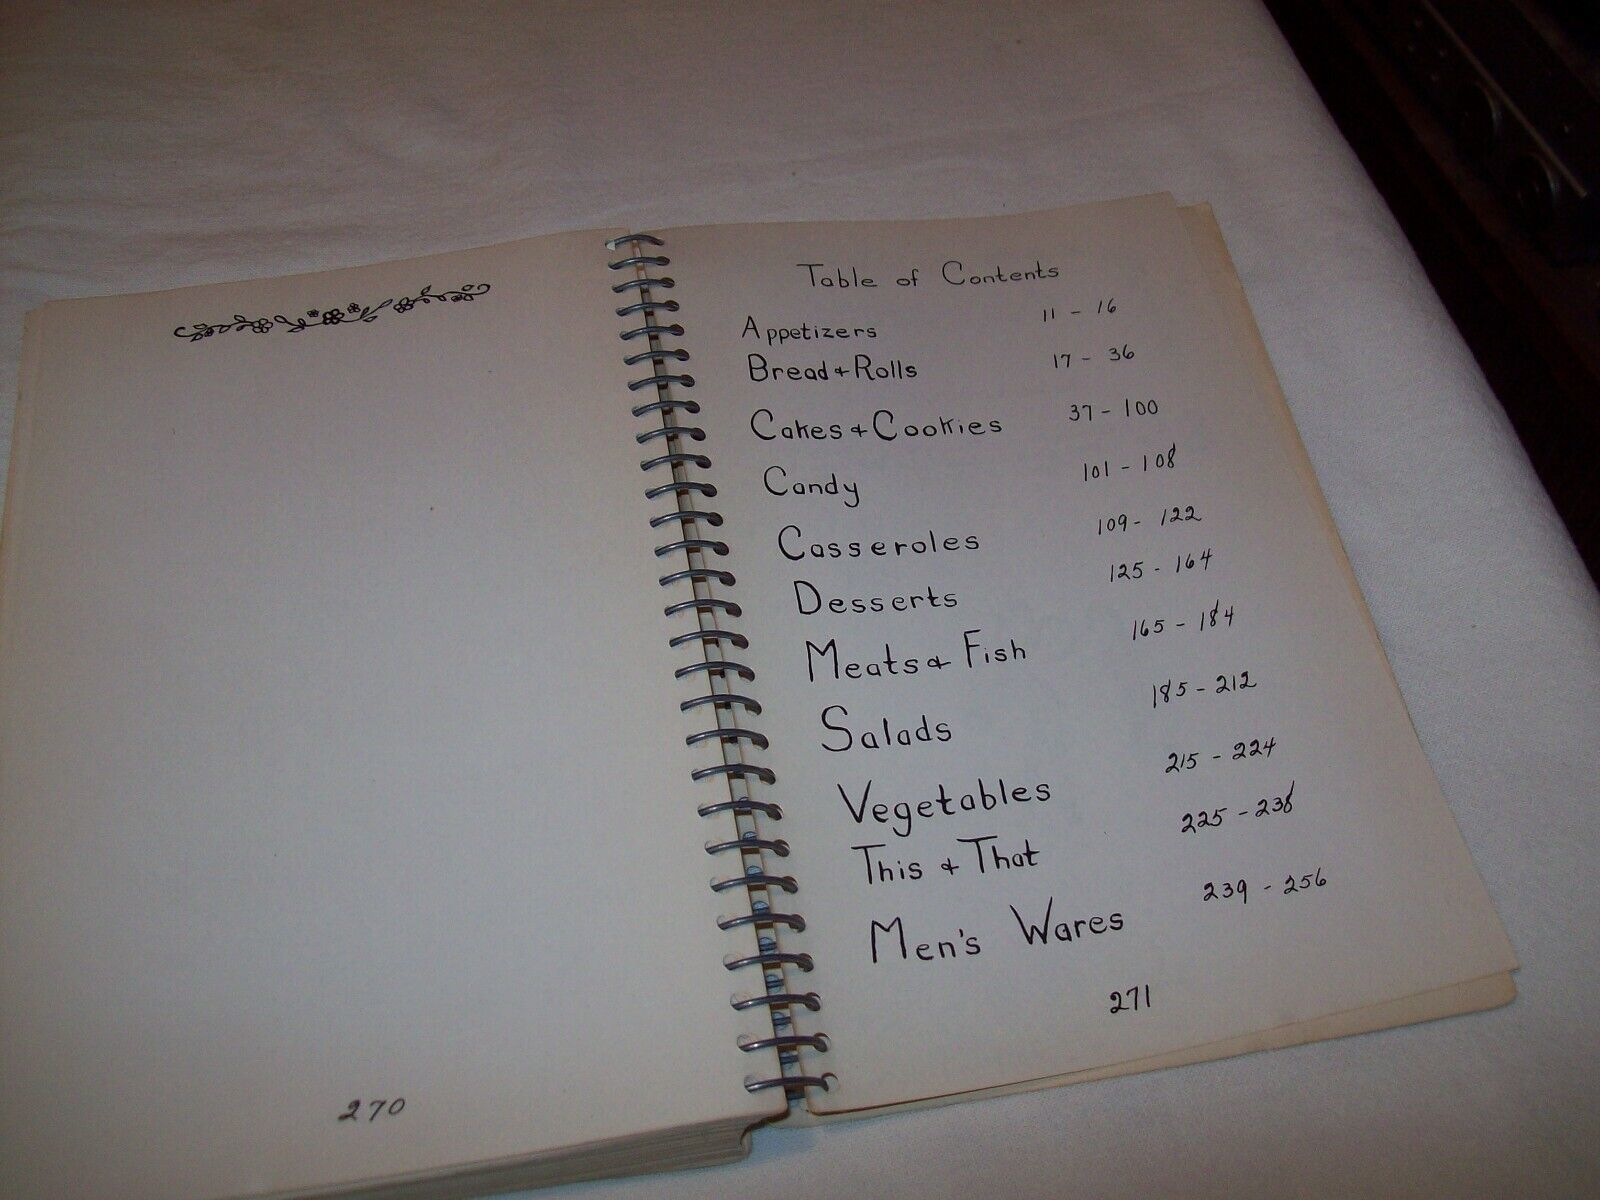 270
Table of Contents
Appetizers 11 - 16
Bread + Rolls 17 - 36
Cakes + Cookies 37 - 100
Candy 101 - 108
Casseroles 109 - 122
Desserts 125 - 164
Meats + Fish 165 - 184
Salads 185 - 212
Vegetables 215 - 224
This + That 225 - 238
Men's Wares 239 - 256
271